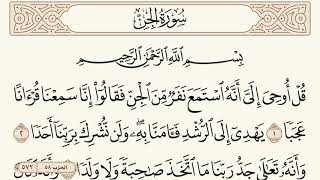 سُورَةُ الجِنِّ
بِسْمِ اللَّهِ الرَّحْمَٰنِ الرَّحِيمِ
قُلْ أُوحِيَ إِلَيَّ أَنَّهُ اسْتَمَعَ نَفَرٌ مِّنَ الْجِنِّ فَقَالُوا إِنَّا سَمِعْنَا قُرْءَانًا
عَجَبًا ١ يَهْدِي إِلَى الرُّشْدِ فَـَٔامَنَّا بِهِۦ وَلَن نُّشْرِكَ بِرَبِّنَا أَحَدًا ٢
وَأَنَّهُ تَعَالَىٰ جَدُّ رَبِّنَا مَا اتَّخَذَ صَاحِبَةً وَلَا وَلَدًا وَأَنَّهُ كَانَ
الحزب ٥٨ ٥٧٢